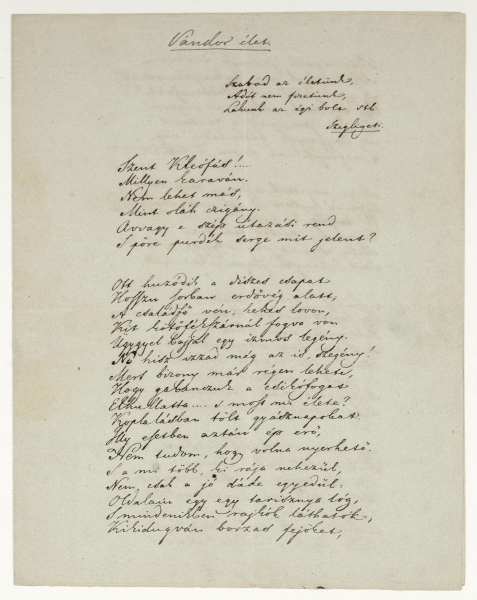 Vándor élet.
Szabad az életünk,
Adót nem fizetünk,
Lakunk az égi bolt stb
Szigligeti.
Szent Kleófás!...
Millyen karaván.
Nem lehet más,
Mint oláh czigány.
Avvagy e szép utazási rend
S pőre purdék serge mit jelent?
Ott huzódik a diszes csapat
Hosszu sorban, erdővég alatt;
A családfő vén, kekes lovon,
Kit kötőfékszárnál fogva von
Ügygyel bajjal egy izmos legény.
No hisz izzad még az is, szegény!
Mert bizony már régen lehete,
Hogy a csikófogat
Elhullatta.... s most mi élete?
Koplalásban tölt gyásznapokat.
Illy esetben aztán ép erő,
Nem tudom, hogy volna nyerhető.
S a mi több, ki rája nehezül,
Nem csak a jó dáde egyedül:
Oldalain egy egy tarisznya lóg,
S mindenikben rajkók láthatók,
Kikidugván borzas fejöket,